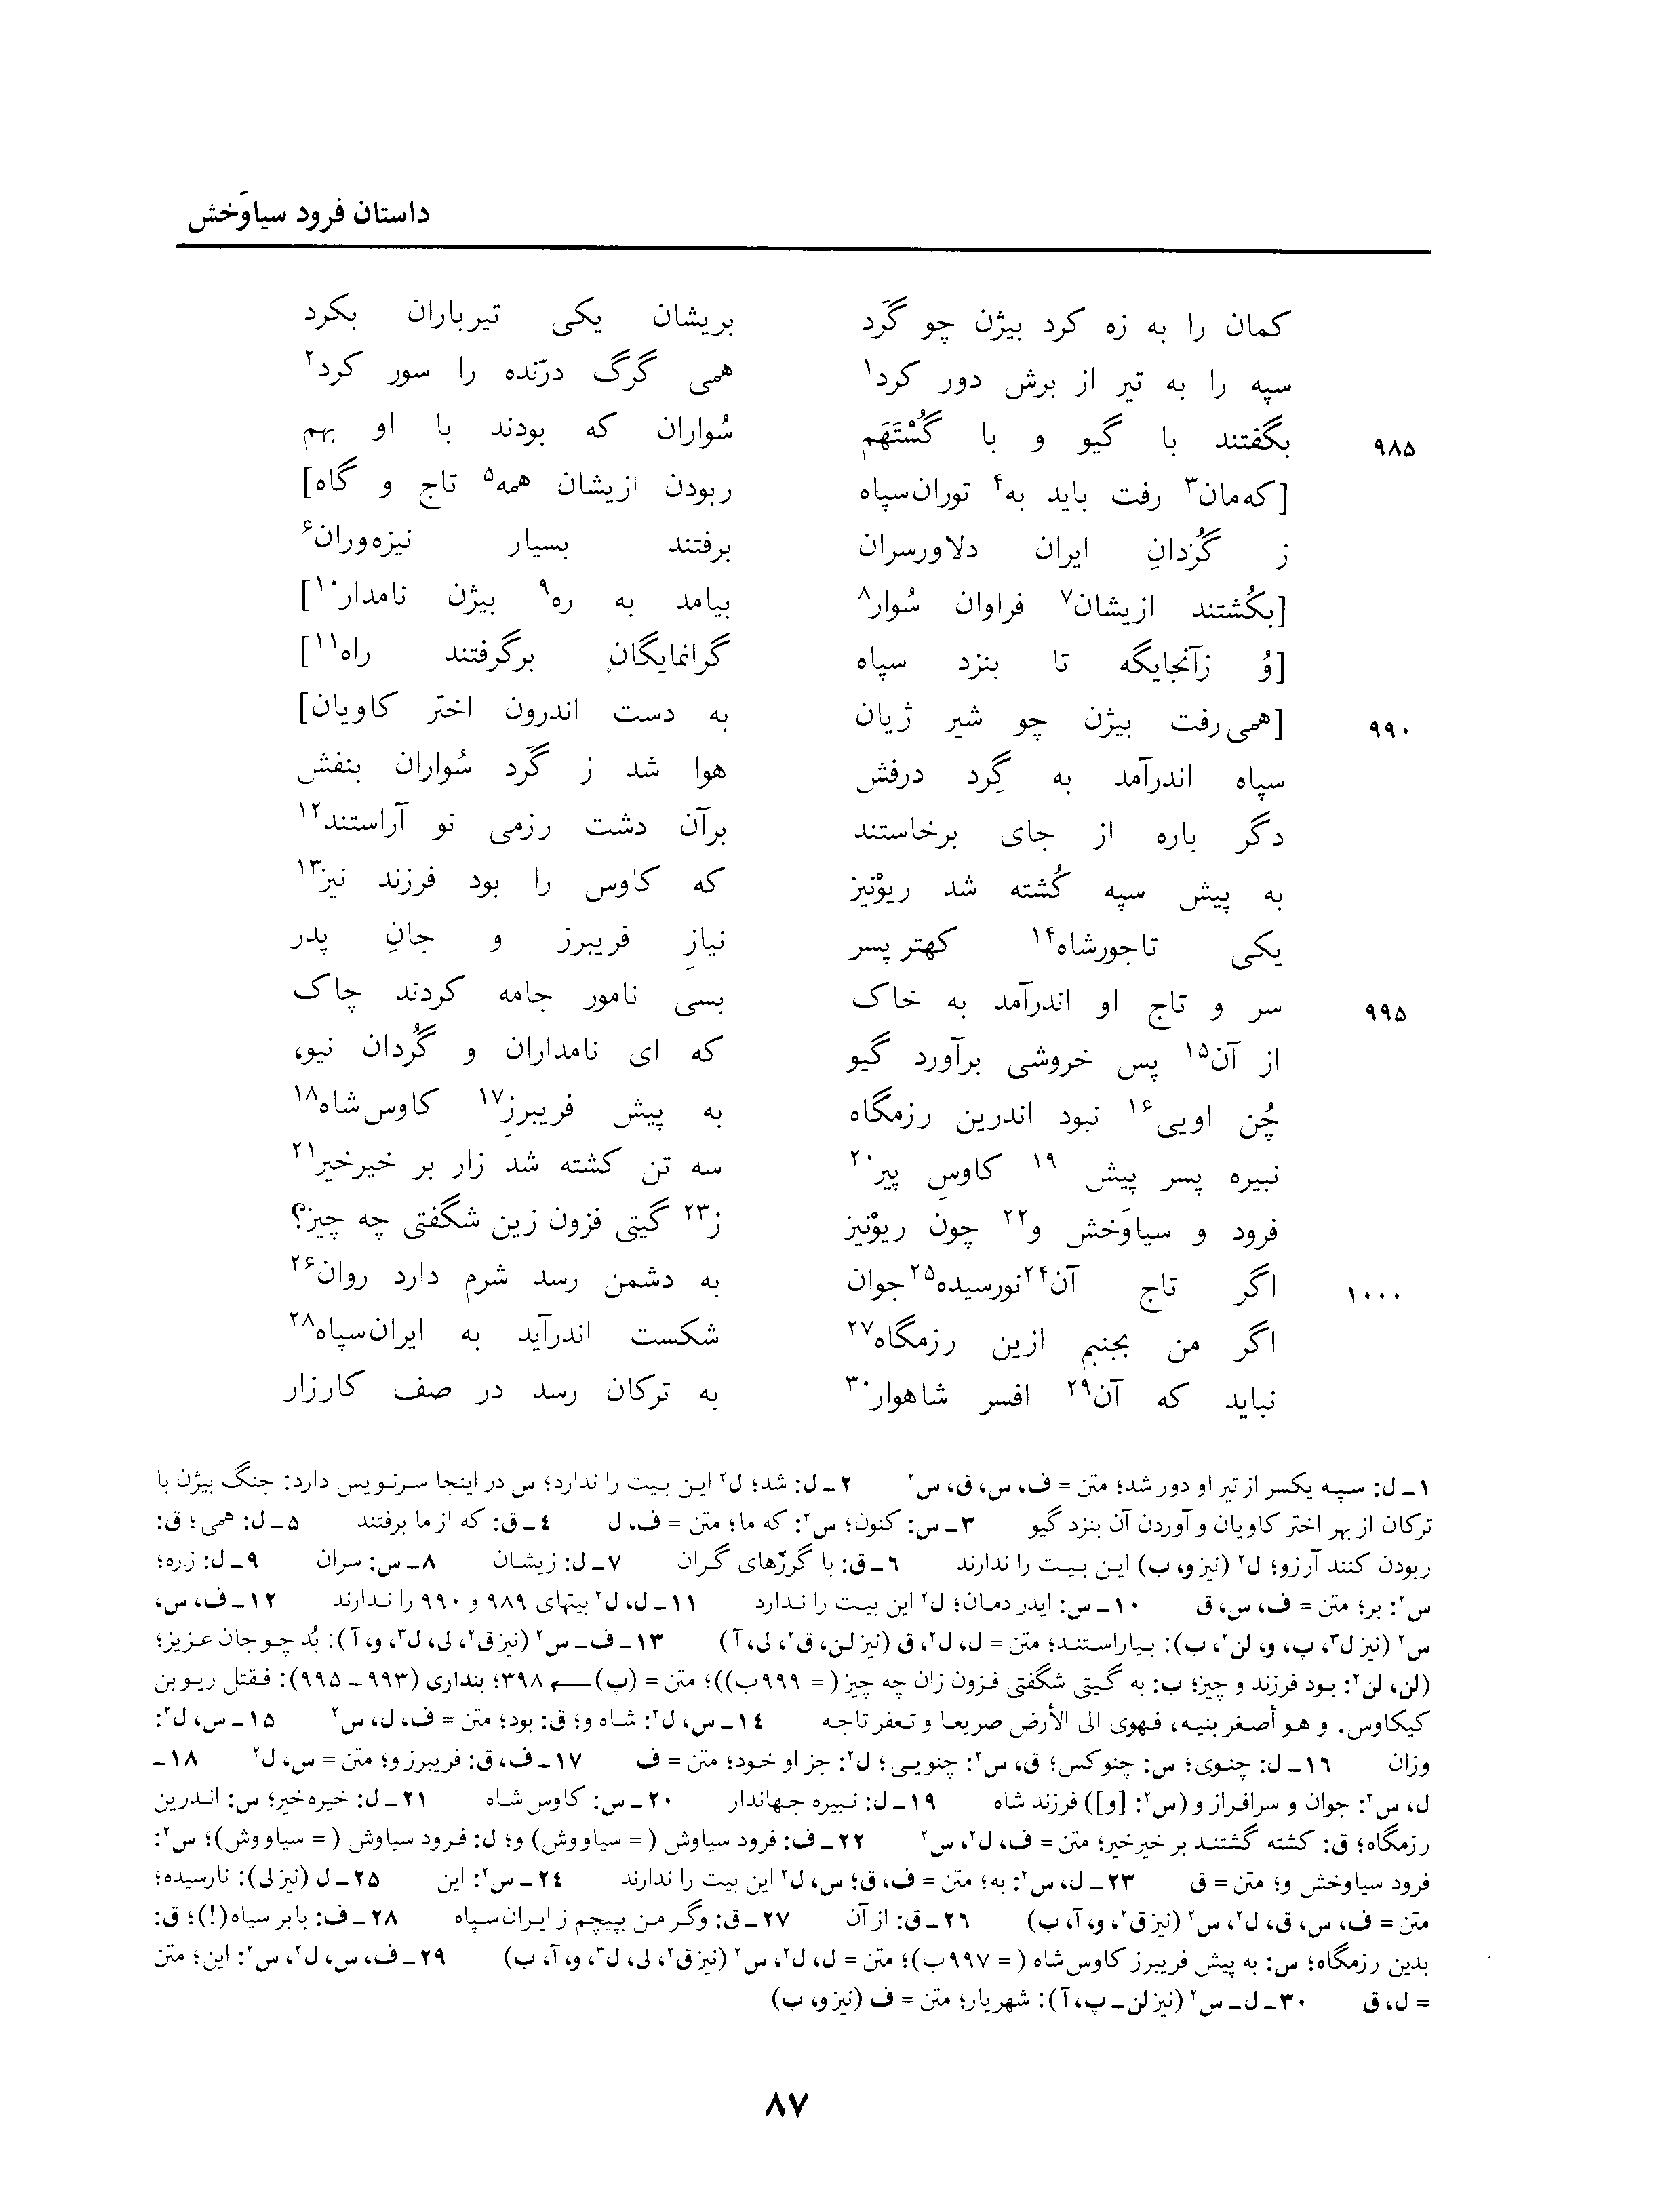 داستان فرود سیاوَخش
کمان را به زه کرد بیژن چو گَرد بریشان یکی تیرباران بکرد
سپه را به تیر از برش دور کرد۱ همی گرگ درّنده را سور کرد۲
۹۸۵ بگفتند با گیو و با گُسْتَهَم سُواران که بودند با او بهم
[که‌مان۳ رفت باید به۴ توران‌سپاه ربودن ازیشان همه۵ تاج و گاه]
ز گُردانِ ایران دلاورسران برفتند بسیار نیزه‌وران۶
[بکُشتند ازیشان۷ فراوان سُوار۸ بیامد به ره۹ بیژن نامدار۱۰]
[وُ زآنجایگه تا بنزد سپاه گرانمایگان برگرفتند راه۱۱]
۹۹۰ [همی‌رفت بیژن چو شیر ژیان به دست اندرون اختر کاویان]
سپاه اندرآمد به گِرد درفش هوا شد ز گَرد سُواران بنفش
دگر باره از جای برخاستند برآن دشت رزمی نو آراستند۱۲
به پیش سپه کُشته شد ریوْنیز که کاوس را بود فرزند نیز۱۳
یکی تاجورشاه۱۴ کهترپسر نیازِ فریبرز و جانِ پدر
۹۹۵ سر و تاج او اندرآمد به خاک بسی نامور جامه کردند چاک
از آن۱۵ پس خروشی برآورد گیو که ای نامداران و گُردان نیو،
چُن اویی۱۶ نبود اندرین رزمگاه به پیش فریبرزِ۱۷ کاوس‌شاه۱۸
نبیره پسر پیش ۱۹ کاوسِ پیر۲۰ سه تن کشته شد زار بر خیرخیر۲۱
فرود و سیاوَخش و۲۲ چون ریوْنیز ز۲۳ گیتی فزون زین شگفتی چه چیز؟
۱۰۰۰ اگر تاج آن۲۴ نورسیده۲۵ جوان به دشمن رسد شرم دارد روان۲۶
اگر من بجنبم ازین رزمگاه۲۷ شکست اندرآید به ایران‌سپاه۲۸
نباید که آن۲۹ افسر شاهوار۳۰ به ترکان رسد در صف کارزار
۱ــ ل: سپه یکسر از تیر او دور شد؛ متن = ف، س، ق، س۲ ۲ــ ل: شد؛ ل۲ این بیت را ندارد؛ س در اینجا سرنویس دارد: جنگ بیژن با
ترکان از بهر اختر کاویان و آوردن آن بنزد گیو ۳ــ س: کنون؛ س۲: که ما؛ متن = ف، ل ۴ــ ق: که از ما برفتند ۵ــ ل: همی؛ ق:
ربودن کنند آرزو؛ ل۲ (نیز و، ب) این بیت را ندارند ۶ــ ق: با گرزهای گران ۷ــ ل: زیشان ۸ــ س: سران ۹ــ ل: زره؛
س۲: بر؛ متن = ف، س، ق ۱۰ــ س: ایدر دمان؛ ل۲ این بیت را ندارد ۱۱ــ ل، ل۲ بیتهای ۹۸۹ و ۹۹۰ را ندارند ۱۲ــ ف، س،
س۲ (نیز ل۳، پ، و، لن۲، ب): بیاراستند؛ متن = ل، ل۲، ق (نیز لن، ق۲، لی، آ) ۱۳ــ ف ــ س۲ (نیز ق۲، لی، ل۳، و، آ): بُد چو جان عزیز؛
(لن، لن۲: بود فرزند و چیز؛ ب: به گیتی شگفتی فزون زان چه چیز (= ۹۹۹ب))؛ متن = (پ) ← ۳۹۸؛ بنداری (۹۹۳ ــ ۹۹۵): فقتل ریو بن
کیکاوس. و هو أصغر بنیه، فهوی الی الأرض صریعا و تعفر تاجه ۱۴ــ س، ل۲: شاه و؛ ق: بود؛ متن = ف، ل، س۲ ۱۵ــ س، ل۲:
وزان ۱۶ــ ل: چنوی؛ س: چنو کس؛ ق، س۲: چنویی؛ ل۲: جز او خود؛ متن = ف ۱۷ــ ف، ق: فریبرز و؛ متن = س، ل۲ ۱۸ــ
ل، س۲: جوان و سرافراز و (س۲: [و]) فرزند شاه ۱۹ــ ل: نبیره جهاندار ۲۰ــ س: کاوس شاه ۲۱ــ ل: خیره خیر؛ س: اندرین
رزمگاه؛ ق: کشته گشتند بر خیرخیر؛ متن = ف، ل۲، س۲ ۲۲ــ ف: فرود سیاوش (= سیاووش) و؛ ل: فرود سیاوش (= سیاووش)؛ س۲:
فرود سیاوخش و؛ متن = ق ۲۳ــ ل، س۲: به؛ متن = ف، ق؛ س، ل۲ این بیت را ندارند ۲۴ــ س۲: این ۲۵ــ ل (نیز لی): نارسیده؛
متن = ف، س، ق، ل۲، س۲ (نیز ق۲، و، آ، ب) ۲۶ــ ق: از آن ۲۷ــ ق: وگر من بپیچم ز ایران‌سپاه ۲۸ــ ف: با بر سیاه (!)؛ ق:
بدین رزمگاه؛ س: به پیش فریبرز کاوس شاه (= ۹۹۷ب)؛ متن = ل، ل۲، س۲ (نیز ق۲، لی، ل۳، و، آ، ب) ۲۹ــ ف، س، ل۲، س۲: این؛ متن
= ل، ق ۳۰ــ ل ــ س۲ (نیز لن ــ پ، آ): شهریار؛ متن = ف (نیز و، ب)
۸۷